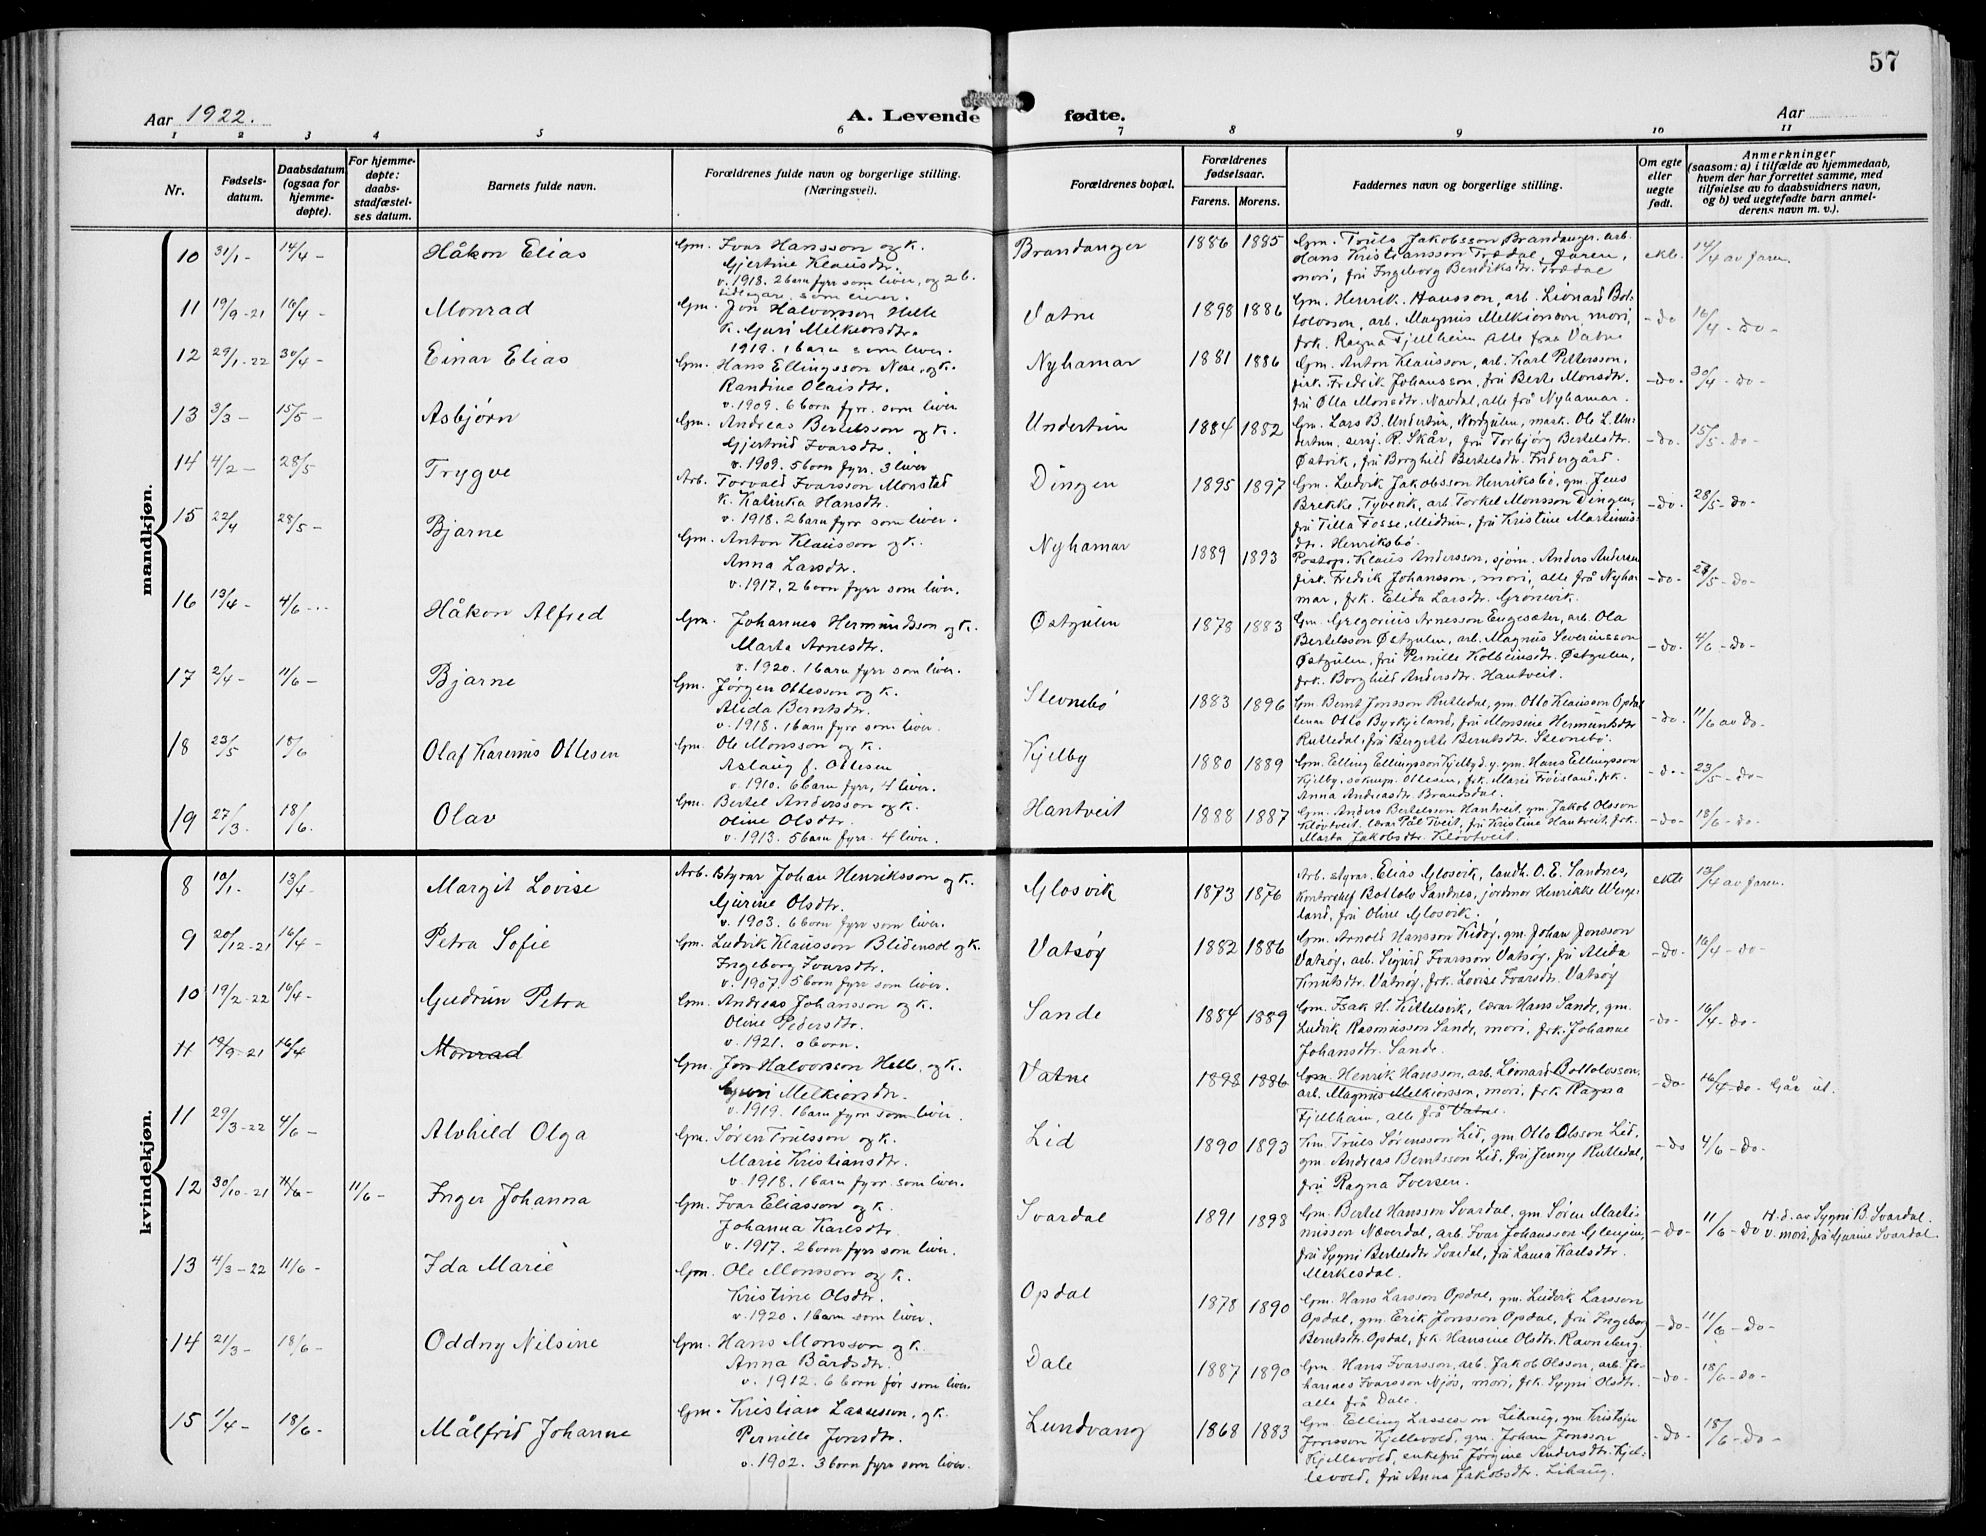 57
Aar 1922.
A. Levende fødte.
Aar
1 2 3 4 5 6 7 8 9 10 11
Nr.
Fødsels-
datum.
Daabsdatum
(ogsaa for
hjemme-
døpte).
For hjemme-
døpte:
daabs-
stadfæstel-
ses datum.
Barnets fulde navn.
Forældrenes fulde navn og borgerlige stilling.
(Næringsvei).
Forældrenes bopæl.
Forældrenes
fødselsaar.
Farens. Morens.
Faddernes navn og borgerlige stilling.
Om egte
eller
uegte
født.
Anmerkninger
(saasom: a) i tilfælde av hjemmedaab,
hvem der har forrettet samme, med
tilføielse av to daabsvidners navn,
og b) ved uegtefødte barn anmel-
derens navn m. v.).
mandkjøn.
10 31/1 - 14/4 - Håkon Elias
Gm. Ivar Hansson og k.
Gjertine Klausdtr.
v. 1918. 2 barn fyrr som liver, og 2 b.
tidlegare som liver.
Brandanger 1886 1885
Gm. Truls Jakobsson Brandanger, arb.
Hans Kristiansson Trædal, faren,
mori, frú Ingeborg Bendiksdtr. Trædal
ekte. 14/4 av faren.
11 19/9-21 16/4 - Monrad
Gm. Jon Halvorsson Helle
k. Guri Melkiorsdtr.
1919. 1 barn som liver.
Vatne 1898 1886
Gm. Henrik Hansson, arb. Lionard Bot-
tolosson, arb. Magnus Melkiorsson, mori,
frk. Ragna Fjellheim alle fraa Vatne
- do 16/4 - do -
12 29/1-22 30/4 - Einar Elias
Gm. Hans Ellingsson Nese, og k.
Randine Olaisdtr.
v. 1909. 6 born fyrr. som liver
Nyhamar 1881 1886
Gm. Anton Klausson, arb. Karl Pettersson,
fisk. Fredrik Johansson, frú Berte Monsdtr.
frú Olla Monsdtr. Navdal, alle frå Nyhamar.
- do. 30/4 - do
13 3/3 - 15/5 - Asbjørn
Gm. Andreas Bertelsson og k.
Gjertrud Ivarsdtr.
v. 1909. 5 born fyrr. 3 liver
Undertun 1884 1882
Gm. Lars B. Undertun, Nordgulen, mask. Ole L. Un-
dertun, sersj. R. Skår, frú Torbjørg Bertelsdtr.
Østvik, frú Borghild Bertelsdtr. Fridergård.
- do. 15/5 - do -
14 4/2 - 28/5 Trygve
Arb. Torvald Ivarsson Monstad
k. Katinka Hansdtr.
v. 1918. 2 barn fyrr som liver.
Dingen 1895 1897
Gm. Ludvik Jakobsson Henriksbø, gm. Jens
Brekke, Tyvevik, arb. Torkel Monsson Dingen,
frú Tilla Fosse, Midtun, frú Kristine Martinus-
dtr. Henriksbø.
- do. 28/5 - do -
15 22/4 28/5 - Bjarne
Gm. Anton Klausson og k.
Anna Larsdtr.
v. 1917. 2 born fyrr som liver.
Nyhamar 1889 1893
Postop. Klaus Andersson, sjøm. Anders Andersen
fisk. Fredrik Johansson, mori, alle frå Nyha-
mar, frk. Elida Larsdtr. Grønevik.
- do - 28/5 - do -
16 13/4 - 4/6 - Håkon Alfred
Gm. Johannes Hermundsson og k.
Marta Arnesdtr.
v. 1920. 1 barn fyrr som liver.
Østgulen 1878 1883
Gm. Gregorius Arnesson Engesæter, arb. Ola
Bertelsson Østgulen, arb. Magnus Severinsson
Østgulen, frú Pernille Kolbeinsdtr. Østgulen,
frk. Borghild Andersdtr. Hantveit.
- do - 4/6 - do -
17 2/4 - 11/6 - Bjarne
Gm. Jørgen Ottesson og k.
Alida Berntsdtr.
v. 1918. 1 barn fyrr som liver.
Stevnebø 1883 1896
Gm. Bernt Jonsson Rutledal, gm. Otto Klausson Opdal
lærar Otto Byrkjeland, frú Monsine Hermundsdtr
Rutledal, frú Bergitte Berntsdtr. Stevnebø.
- do. 11/6 av do -
18 23/5 18/6 Olaf Karenus Ottesen
Gm. Ole Monsson og k.
Aslaug f. Ottesen
v. 1910. 6 barn fyrr, 4 liver.
Kjelby 1880 1889
Gm. Elling Ellingsson Kjelby d.y. gm. Hans Ellingsson
Kjelby, soknepr. Ottesen, frk. Marie Frøisland, frk.
Anna Andreasdtr. Brandsdal.
- do - 23/5 - do -
19 27/3 18/6. Olav
Gm. Bertel Andersson og k.
Oline Olsdtr.
v. 1913. 5 barn fyrr. 4 liver.
Hantveit 1888 1887
Gm. Anders Bertelsson Hantveit, gm. Jakob Olsson
Kløvtveit, lærar Pål Tveit, frú Kristine Hantveit, frk.
Marta Jakobsdtr. Kløvtveit.
- do - 18/6 - do.
kvindekjøn.
8 10/1. 13/4 Margit Lovise
Arb. styrar Johan Henriksson og k.
Gurine Olsdtr.
v. 1903. 6 born fyrr som liver.
Glosvik 1873 1876
Arb. styrar. Elias Glosvik, landh. O. E. Sandnes,
kontorchef Bottolv Sandnes, jordmor Henrikke Werge-
land, frú Oline Glosvik.
ekte 13/4 av faren.
9 20/12-21 16/4 - Petra Sofie
Gm. Ludvik Klausson Blidensol og k.
Ingeborg Ivarsdtr.
v. 1907. 5 born fyrr som liver.
Vatsøy 1882 1886
Gm. Arnold Hansson Kidøy, gm. Johan Jonsson
Vatsøy, arb. Sigurd Ivarsson Vatsøy, frú Alida
Knutsdtr. Vatsøy, frk. Lovise Ivarsdtr. Vatsøy
- do - 16/4 - do -
10 19/2-22 16/4 - Gudrun Petra
Gm. Andreas Johansson og k.
Oline Pedersdtr.
v. 1921. 0 born.
Sande 1884 1889
Gm. Isak H. Kittelsvik, lærar Hans Sande, gm.
Ludvik Rasmusson Sande, mori, frk. Johanne
Johansdtr. Sande.
- do - 16/4 - do -
11 19/9-21 16/4 Monrad
Gm. Jon Halvorsson Helle, og k.
Guri Melkiorsdtr.
v. 1919. 1 barn fyrr som liver.
Vatne 1898 1886
Gm. Henrik Hansson, arb. Lionard Bottolosson,
arb. Magnus Melkiorsson, mori, frk. Ragna
Fjellheim, alle frå Vatne.
- do 16/4 - do - Går ut.
11 29/3-22 4/6 - Alvhild Olga
Gm. Søren Trulsson og k.
Marie Kristiansdtr.
v. 1918. 1 barn fyrr. som liver.
Lid 1890 1893
Km. Truls Sørensson Lid, gm. Otto Olsson Lid,
gm. Andreas Berntsson Lid, frú Jenny Rutledal,
frú Ragna Iversen.
- do 4/6 - do -
12 30/10-21 11/6 - 11/6 - Inger Johanna
Gm. Ivar Eliasson og k.
Johanna Karlsdtr.
v. 1917. 2 born fyrr som liver.
Svardal 1891 1898
Gm. Bertel Hansson Svardal, gm. Søren Marti-
nusson Næverdal, arb. Ivar Johansson Glenjen,
frú Sygni Bertelsdtr Svardal, frú Laura Karlsdtr.
Merkesdal.
- do - 11/6 - do H. d. av Sygni B. Svardal.
v. mori, frú Gurine Svardal.
13 4/3-22 11/6 - Ida Marie
Gm. Ole Monsson og k.
Kristine Olsdtr.
v. 1920. 1 barn som liver.
Opdal 1878 1890
Gm. Hans Larsson Opdal, gm. Ludvik Larsson
Opdal, gm. Erik Jonsson Opdal, frú Ingeborg
Berntsdtr. Opdal, frk Hansine Olsdtr. Ravneberg.
- do - 11/6 - do -
14 21/3 - 18/6 - Oddny Nilsine
Gm. Hans Monsson og k.
Anna Bårdsdtr.
v. 1912. 6 born før som liver.
Dale 1887 1890
Gm. Hans Ivarsson, arb. Jakob Olsson, arb. Jo-
hannes Ivarsson Njøs, mori, frk. Sygni Olsdtr.
alle frå Dale.
- do - 18/6 - do -
15 1/4 - 18/6 - Målfrid Johanne
Gm. Kristian Lassesson, og k.
Pernille Jonsdtr.
v. 1902. 3 born fyrr som liver.
Lundvang 1868 1883
Gm. Elling Lassesson Lihaug, gm. Kristjan
Jonsson Kjellevold, gm. Johan Jonsson
Kjellevold, enkefrú Jørgine Andersdtr. Kjel-
levold, frú Anna Jakobsdtr. Lihaug.
- do - 18/6 - do -